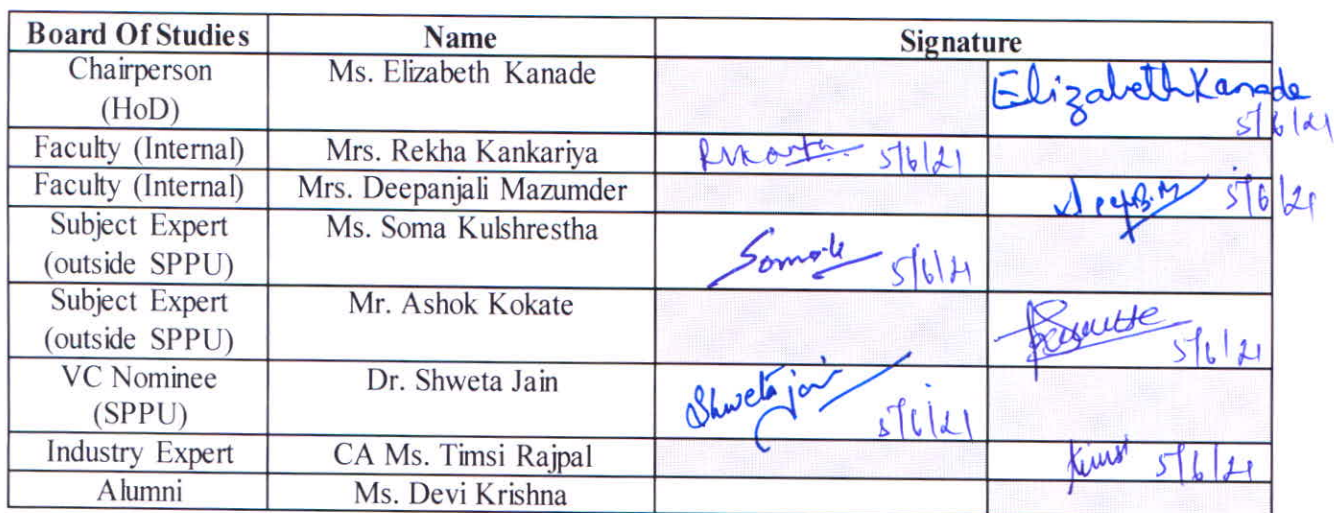 Board Of Studies Name Signature
Chairperson (HoD) Ms. Elizabeth Kanade Elizabeth Kanade 5/6/21
Faculty (Internal) Mrs. Rekha Kankariya 5/6/21
Faculty (Internal) Mrs. Deepanjali Mazumder 5/6/21
Subject Expert (outside SPPU) Ms. Soma Kulshrestha 5/6/21
Subject Expert (outside SPPU) Mr. Ashok Kokate 5/6/21
VC Nominee (SPPU) Dr. Shweta Jain Shweta jain 5/6/21
Industry Expert CA Ms. Timsi Rajpal 5/6/21
Alumni Ms. Devi Krishna